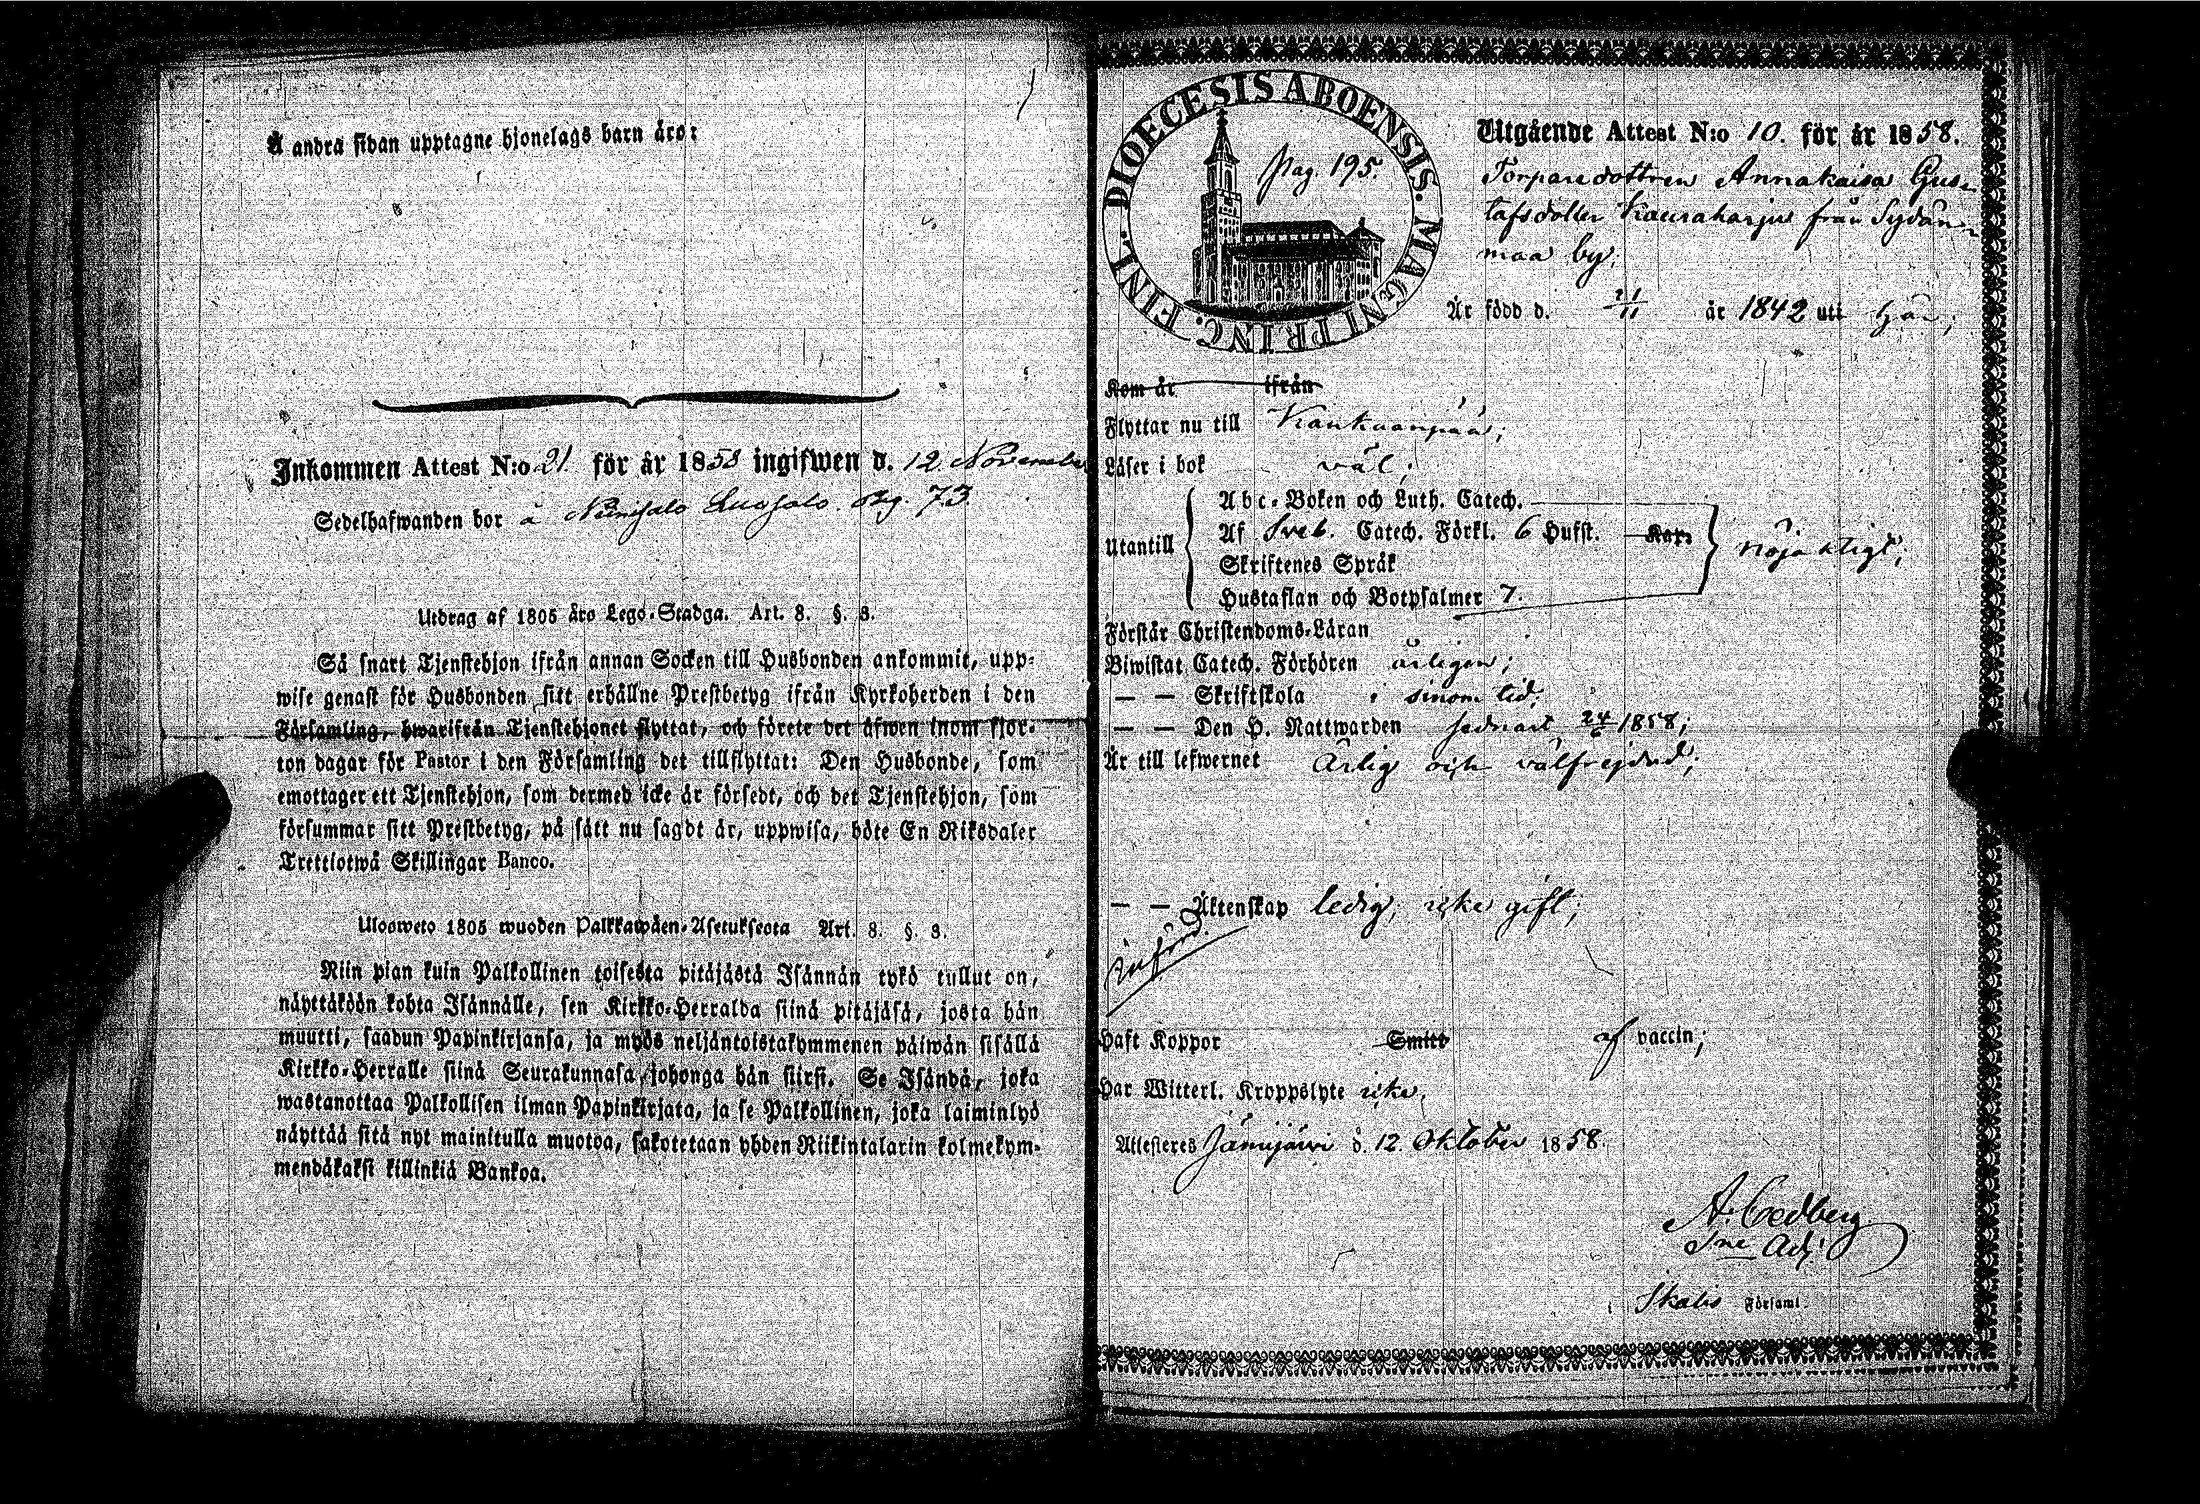 Å andra sidan upptagne hjonelags barn äro:
Inkommen Attest N:o 21. för år 1858 ingifwen d. 12. November
Sedelhafwanden bor å Niinisalo Luosalo. Pag. 73.
Utdrag af 1805 års Lego-Stadga. Art. 8. §. 3.
Så snart Tjenstehjon ifrån annan Socken till Husbonden ankommit, upp-
wise genast för Husbonden sitt erhållne Prestbetyg ifrån Kyrkoherden i den
Församling, hwarifrån Tjenstehjonet flyttat, och förete det äfwen inom fjor-
ton dagar för Pastor i den Församling det tillflyttat: Den Husbonde, som
emottager ett Tjenstehjon, som dermed icke är försedt, och det Tjenstehjon, som
försummar sitt Prestbetyg, på sätt nu sagdt är, uppwisa, böte En Riksdaler
Trettiotwå Skillingar Banco.
Ulosweto 1805 wuoden Palkkawäen-Asetuksesta Art. 8. §. 3.
Niin pian kuin Palkollinen toisesta pitäjästä Isännän tykö tullut on,
näyttäköön kohta Isännälle, sen Kirkko-Herralda siinä pitäjäsä, josta hän
muutti, saadun Papinkirjansa, ja myös neljäntoistakymmenen päiwän sisällä
Kirkko-Herralle siinä Seurakunnasa johonga hän siirsi. Se Isändä, joka
wastanottaa Palkollisen ilman Papinkirjata, ja se Palkollinen, joka laiminlyö
näyttää sitä nyt mainitulla muotoa, sakotetaan yhden Riikintalarin kolmekym-
mendäkaksi killinkiä Bankoa.
DIOECESIS ABOENSIS. MAGNI PRINC. FINL.
Pag. 195.
Utgående Attest N:o 10. för år 1858.
Torparedottren Annakaisa Gus-
tafsdotter Kauraharju från Sydän-
maa by,
Är född d. 21/11 år 1842 uti här;
Kom år ifrån
Flyttar nu till Kankaanpää;
Läser i bok väl.
Utantill
Abc-Boken och Luth. Catech.
Af Sveb. Catech. Förkl. 6 Hufst. Kap.
Skriftenes Språk
Hustaflan och Botpsalmer 7.
nöjaktigt;
Förstår Christendoms-Läran
Biwistat Catech. Förhören årligen;
— — Skriftskola i sinom tid;
— — Den H. Nattwarden sednast 24/6 1858;
Är till lefwernet Ärlig och välfrejdad;
— — Äktenskap ledig, icke gift;
Införd.
Haft Koppor Smitt af vaccin;
Har Witterl. Kroppslyte icke.
Attesteres Jämijärvi d. 12. Oktober 1858.
A. Cedberg
Adj.
i Församl.